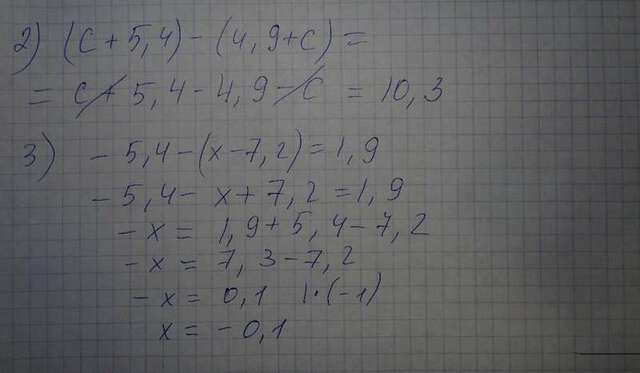 2) (C + 5,4) - (4,9 + C) =
= C + 5,4 - 4,9 - C = 10,3
3) - 5,4 - (x - 7,2) = 1,9
- 5,4 - x + 7,2 = 1,9
- x = 1,9 + 5,4 - 7,2
- x = 7,3 - 7,2
- x = 0,1 | · (-1)
x = - 0,1